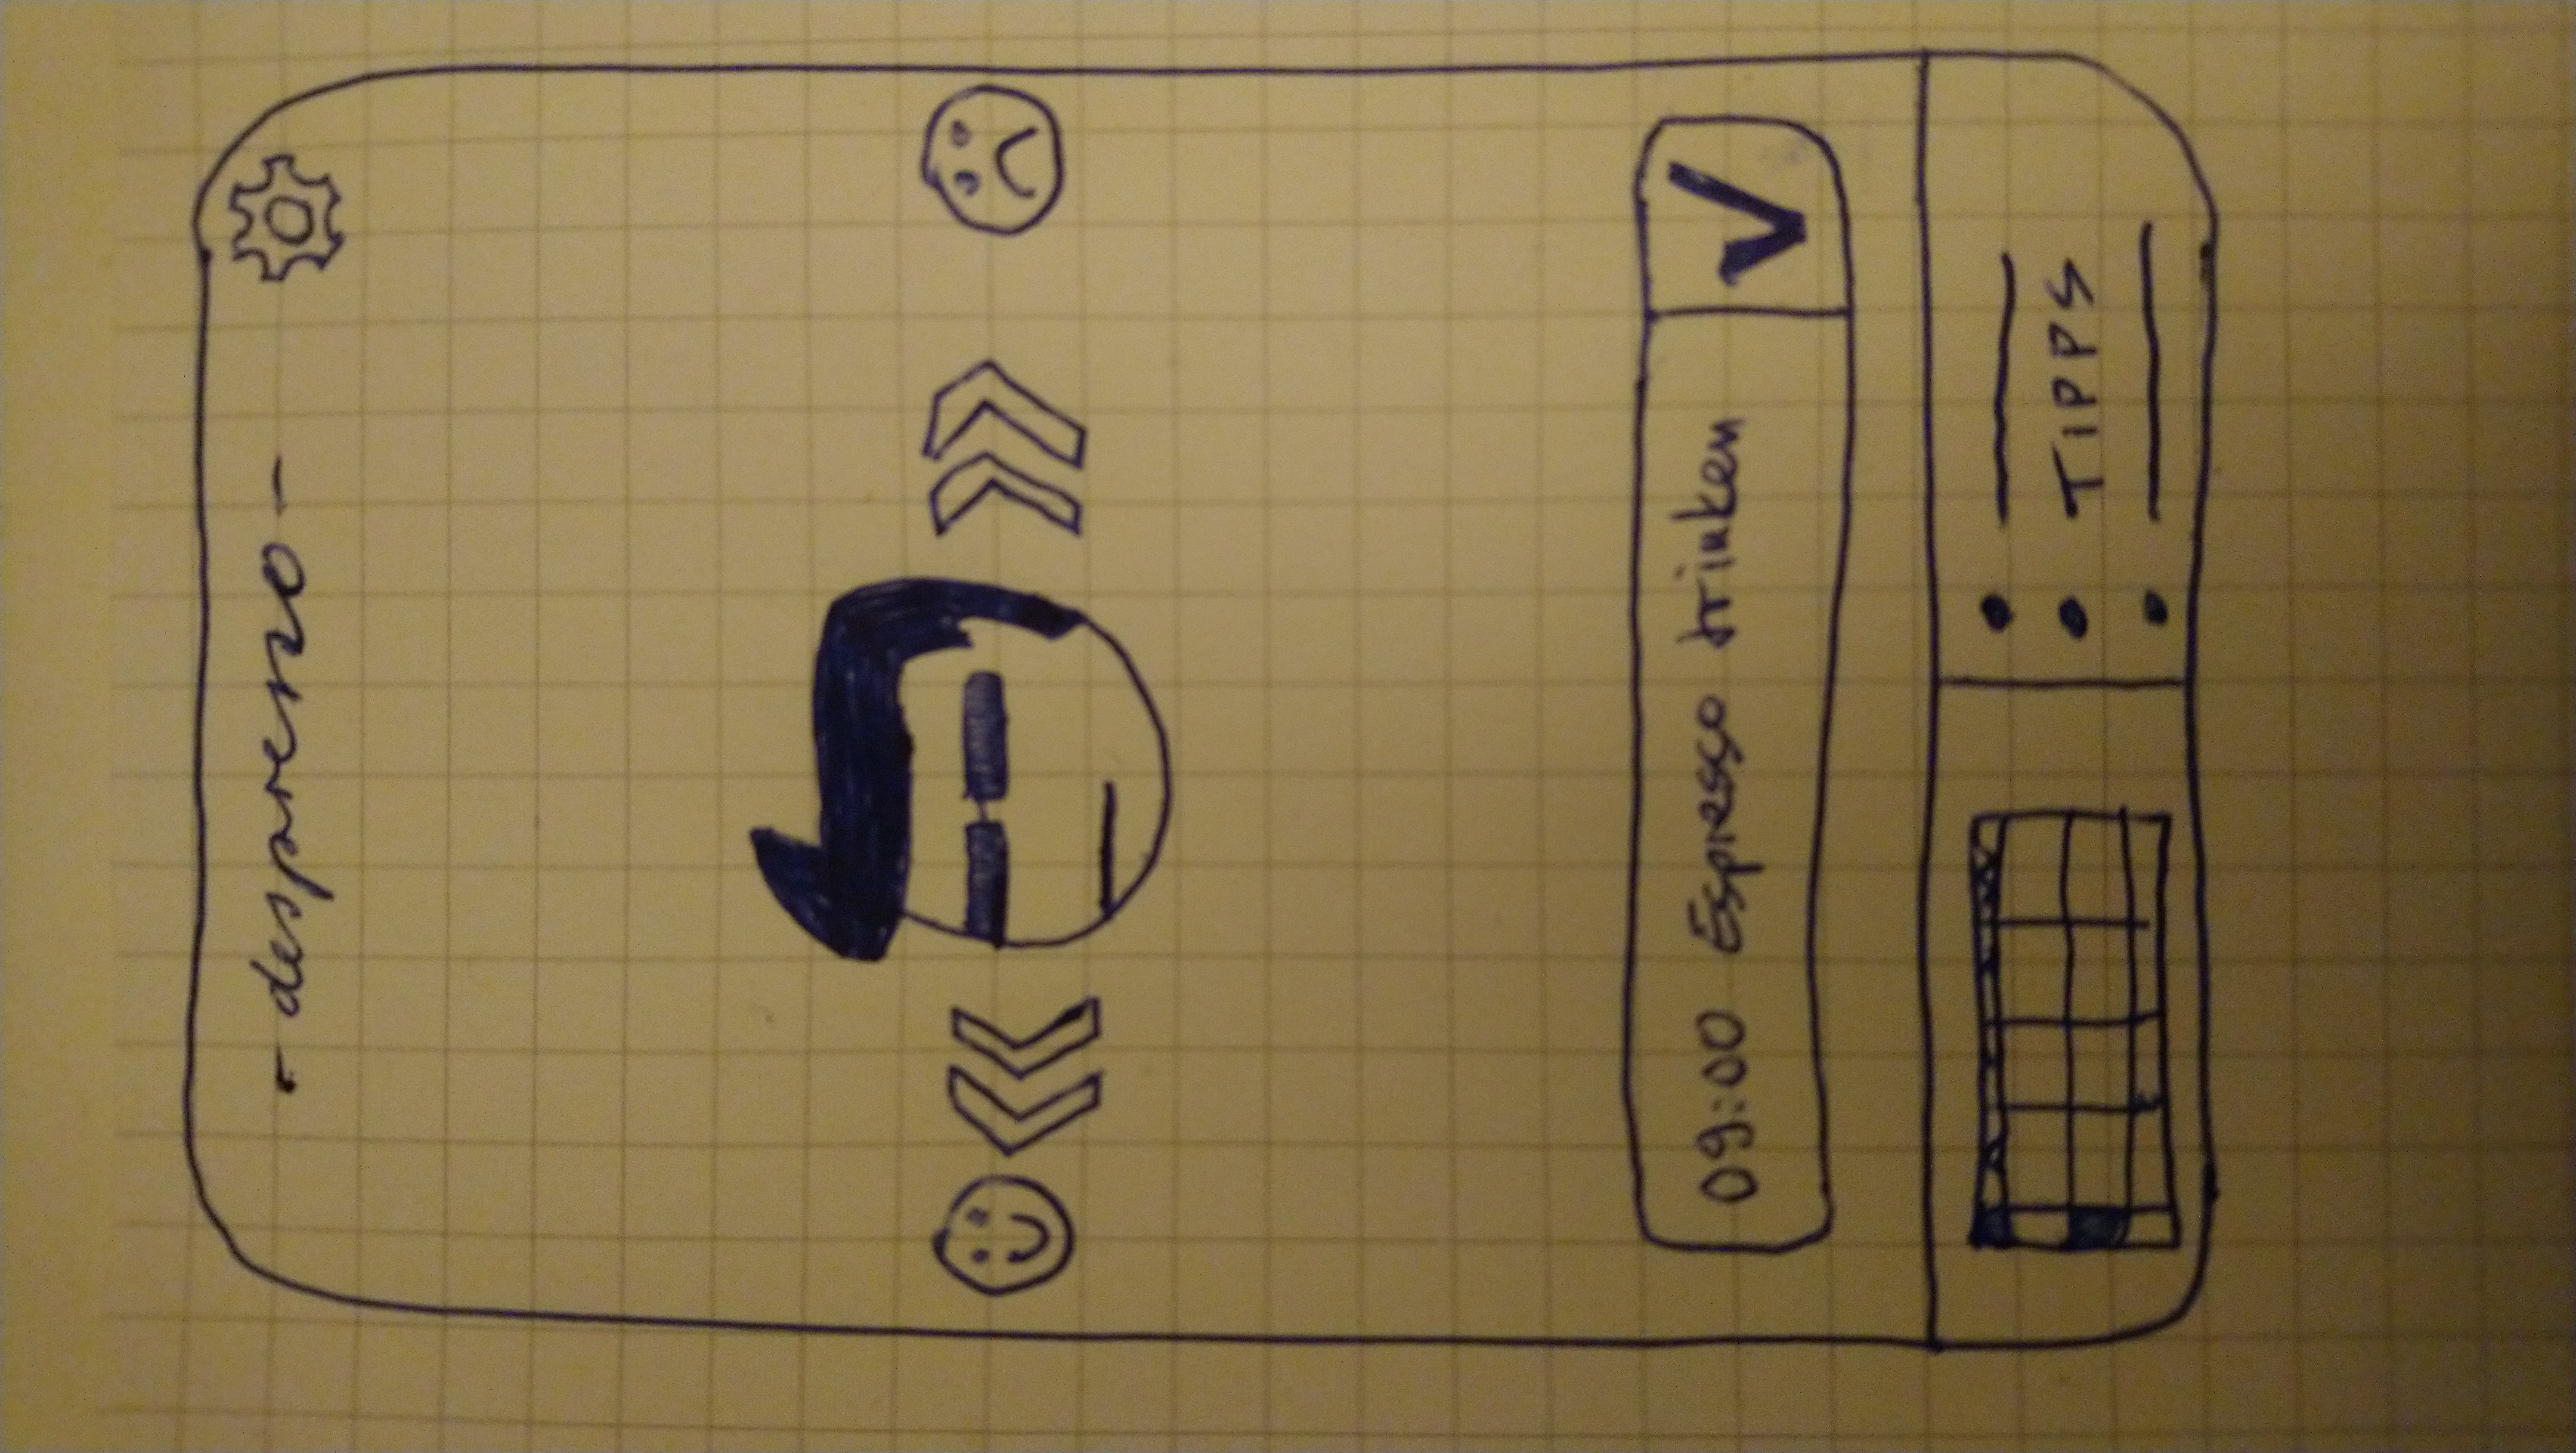 - despareszo -
09:00 Espresso trinken
TIPPS